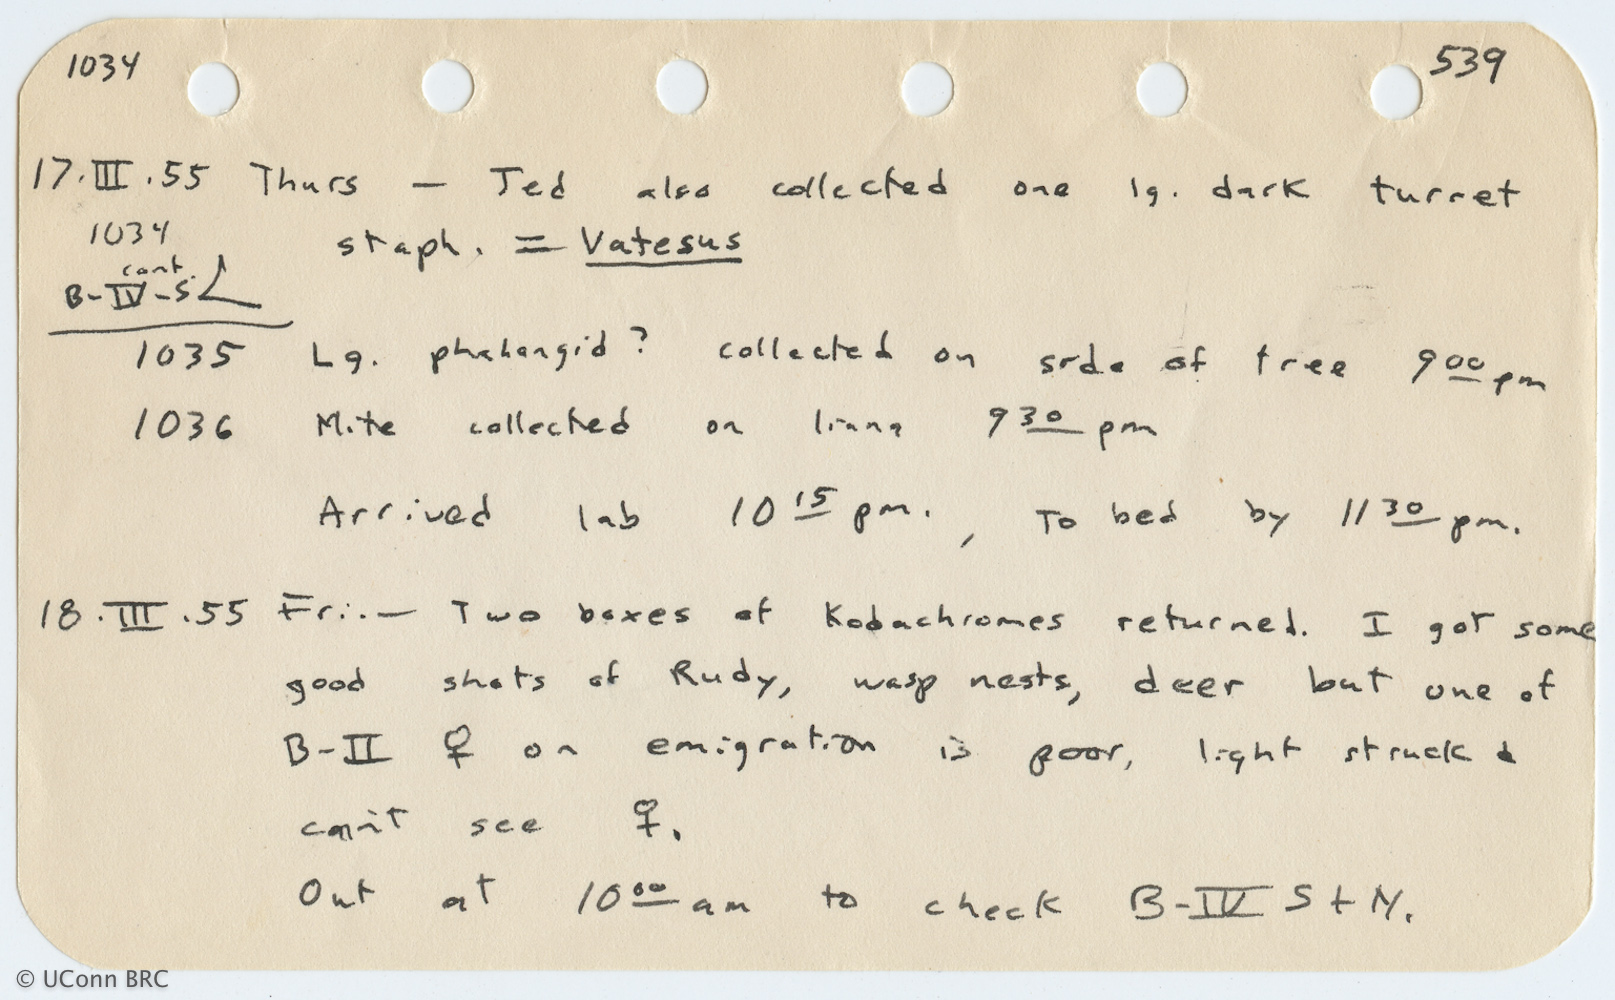 1034 539
17.III.55 Thurs — Ted also collected one lg. dark turret
1034 staph. = Vatesus
cont.
B-IV-S
1035 Lg. phalangid? collected on side of tree 9 00 pm
1036 Mite collected on liana 9 30 pm
Arrived lab 10 15 pm., To bed by 11 30 pm.
18.III.55 Fri. — Two boxes of Kodachromes returned. I got some
good shots of Rudy, wasp nests, deer but one of
B-II ♀ on emigration is poor, light struck &
can't see ♀.
Out at 10 00 am to check B-IV S + N.
© UConn BRC